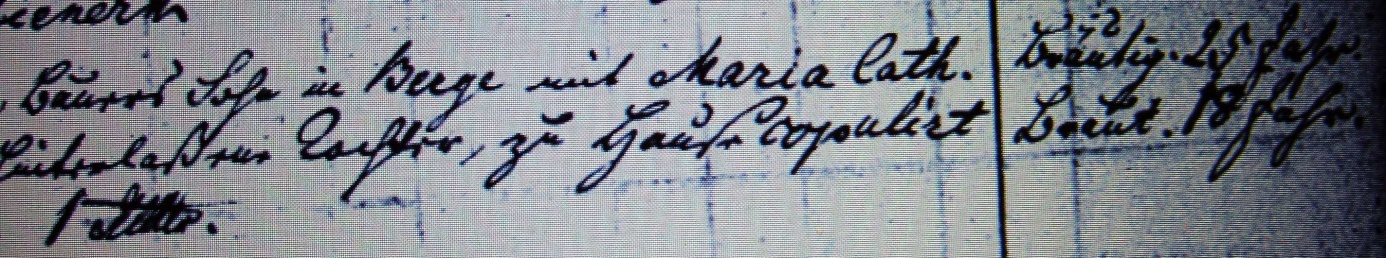 Bauers Sohn in Berge mit Maria Cath.
hinterlaßene Tochter, zu Hause copulirt
Bräutig. 25 Jahr.
Braut. 18 Jahr.